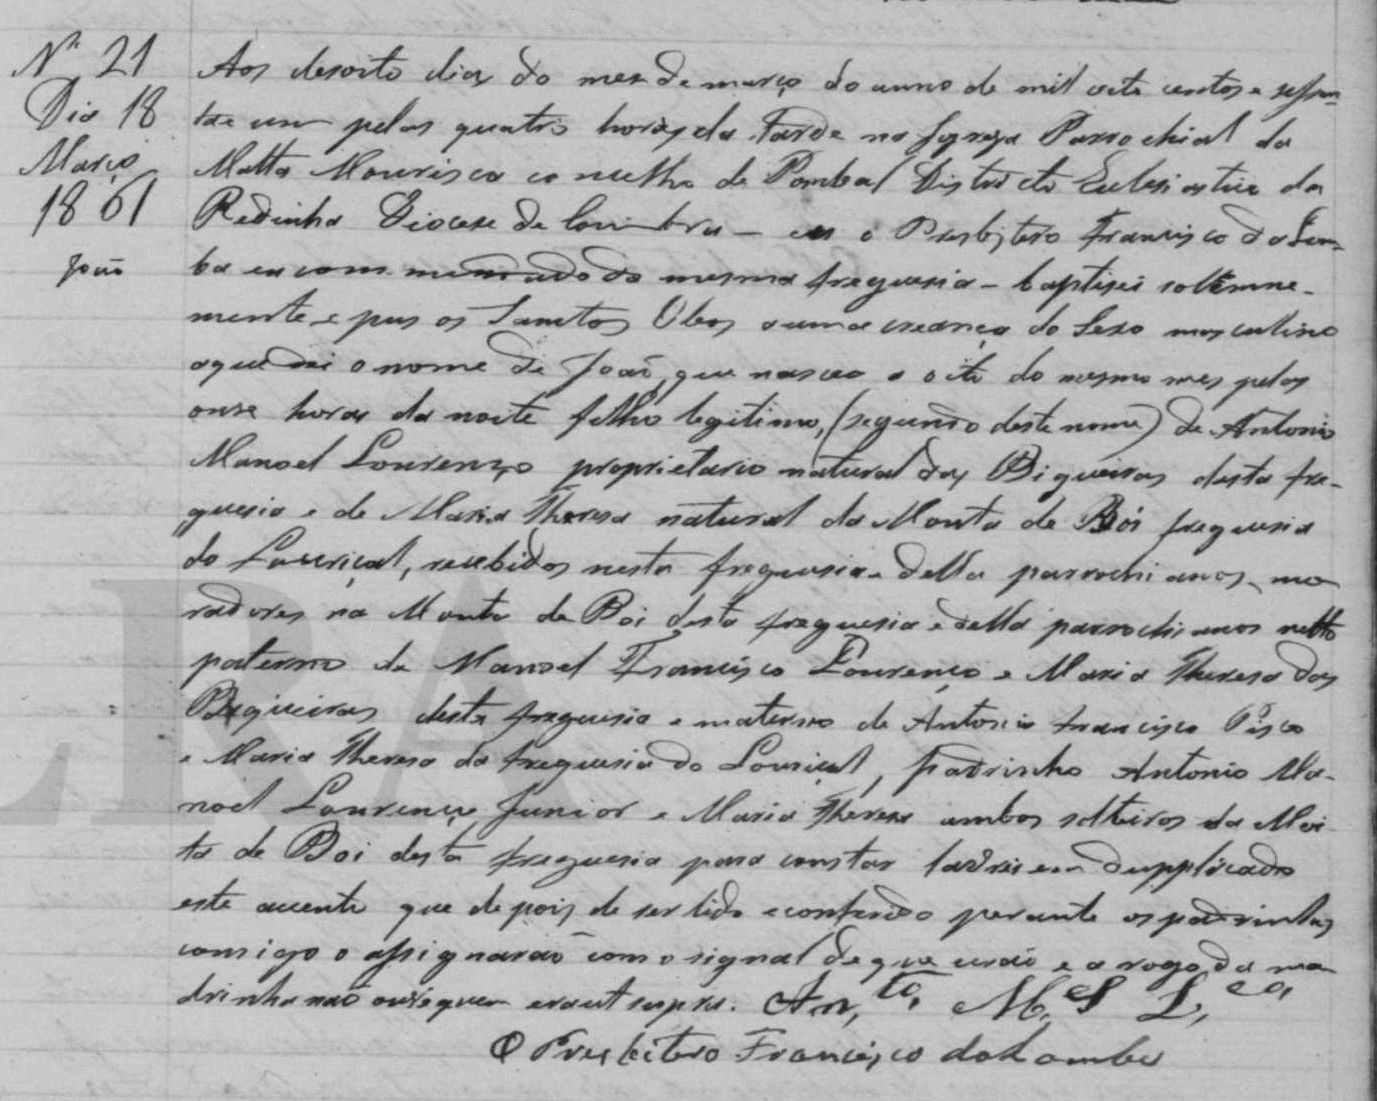 Nº 21
Dia 18
Março
1861
João
Aos desoito dias do mes de março do anno de mil oito centos e sessen-
ta e um pelas quatro horas da Tarde na Igreja Parrochial da
Matta Mourisca conselho de Pombal Districto Eclesiastico da
Redinha Diocese de Coimbra – eu o Presbitero Francisco da Lom-
ba encommendado da mesma freguesia – baptisei sollemne-
mente e pus os Santos Oleos a uma creança do Sexo masculino
a que dei o nome de João, que nasceo a oito do mesmo mes pelas
onse horas da noite filho legitimo, (segundo deste nome) de Antonio
Manoel Lourenço proprietario natural das Bigueiras desta fre-
guesia e de Maria Theresa natural da Mouta de Boi freguesia
do Louriçal, recebidos nesta freguesia e della parrochianos, mo-
radores na Mouta de Boi desta freguesia e della parrochianos netto
paterno de Manoel Francisco Lourenço e Maria Theresa das
Bigueiras desta freguesia e materno de Antonio Francisco Pisco
e Maria Theresa da freguesia do Louriçal, padrinho Antonio Ma-
noel Lourenço Junior e Maria Theresa ambos solteiros da Moi-
ta de Boi desta freguesia para constar lavrei em dupplicado
este accento que depois de ser lido e conferido perante os padrinhos
comigo o assignarão com o signal de que usão e a rogo da ma-
drinha não ouve quem era ut supra. An,to, M,el L,ço,
O Presbitero Francisco da Lomba